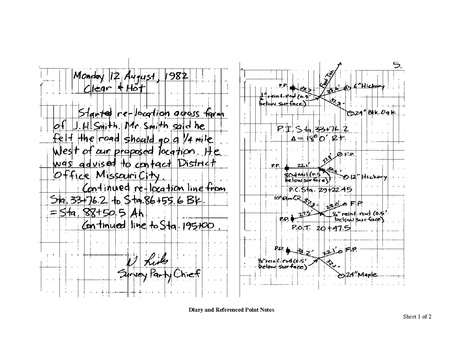 Monday 12 August, 1982
Clear + Hot
Started re-location across farm
of J.H. Smith. Mr. Smith said he
felt the road should go a 1/4 mile
West of our proposed location. He
was advised to contact District
Office Missouri City.
Continued re-location line from
Sta. 33+76.2 to Sta. 86+55.6 Bk.
= Sta. 88+50.5 Ah.
Continued line to Sta. 195+00.
Survey Party Chief
5.
P.P.
6" Hickory
below surface)
24" Blk. Oak
P.I. Sta. 33+76.2
Δ = 18° 0' Rt.
F.P.
P.P.
below surface)
12" Hickory
P.C. Sta. 29+22.45
F.P.
P.P.
1/2" reinf. rod (0.5'
below surface)
P.O.T. 20+47.5
P.P.
F.P.
1/2" reinf. rod (0.5'
below surface)
24" Maple
Diary and Referenced Point Notes
Sheet 1 of 2